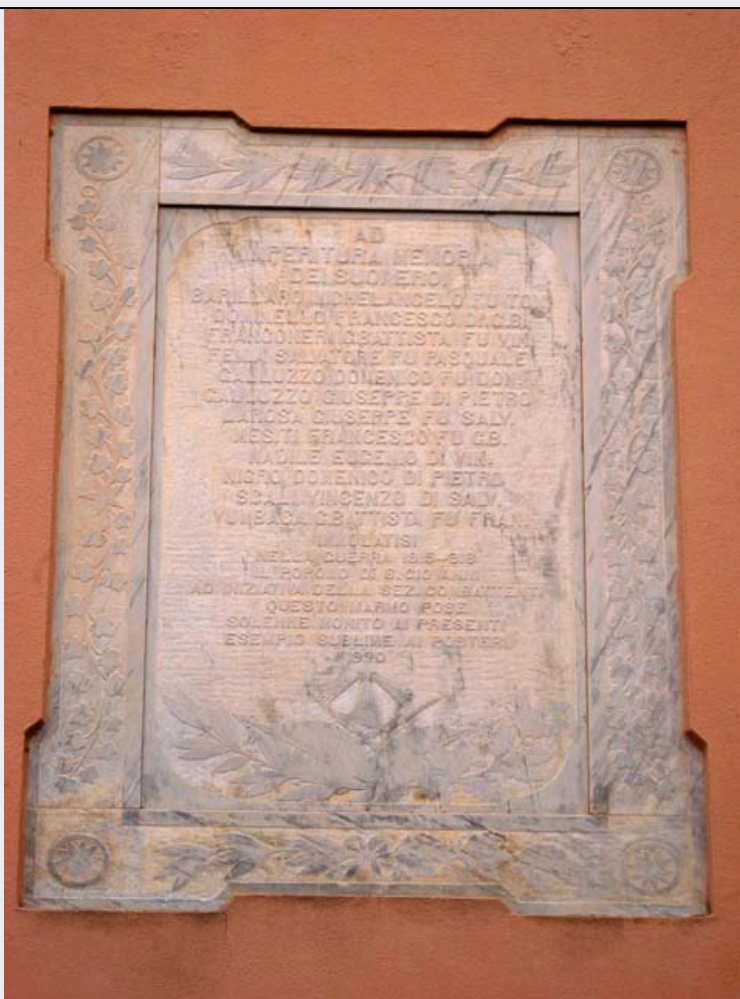 AD
IMPERITURA MEMORIA
DEI SUOI EROI
BARILLARO MICHELANGELO FU
FRANCESCO DI G.B.
FRANCONERI G.BATTISTA FU VIN.
SALVATORE FU PASQUALE
GALLUZZO DOMENICO FU DOM.
GALLUZZO GIUSEPPE DI PIETRO
LAROSA GIUSEPPE FU SALV.
MESITI FRANCESCO FU G.B.
EUGENIO DI VIN.
NIGRO DOMENICO DI PIETRO
SCALI VINCENZO DI SALV.
G.BATTISTA FU FRAN.
IMMOLATISI
NELLA GUERRA 1915-918
IL POPOLO DI S. GIOVANNI
AD INIZIATIVA DELLA SEZ. COMBATTENTI
QUESTO MARMO POSE
SOLENNE MONITO AI PRESENTI
ESEMPIO SUBLIME AI POSTERI